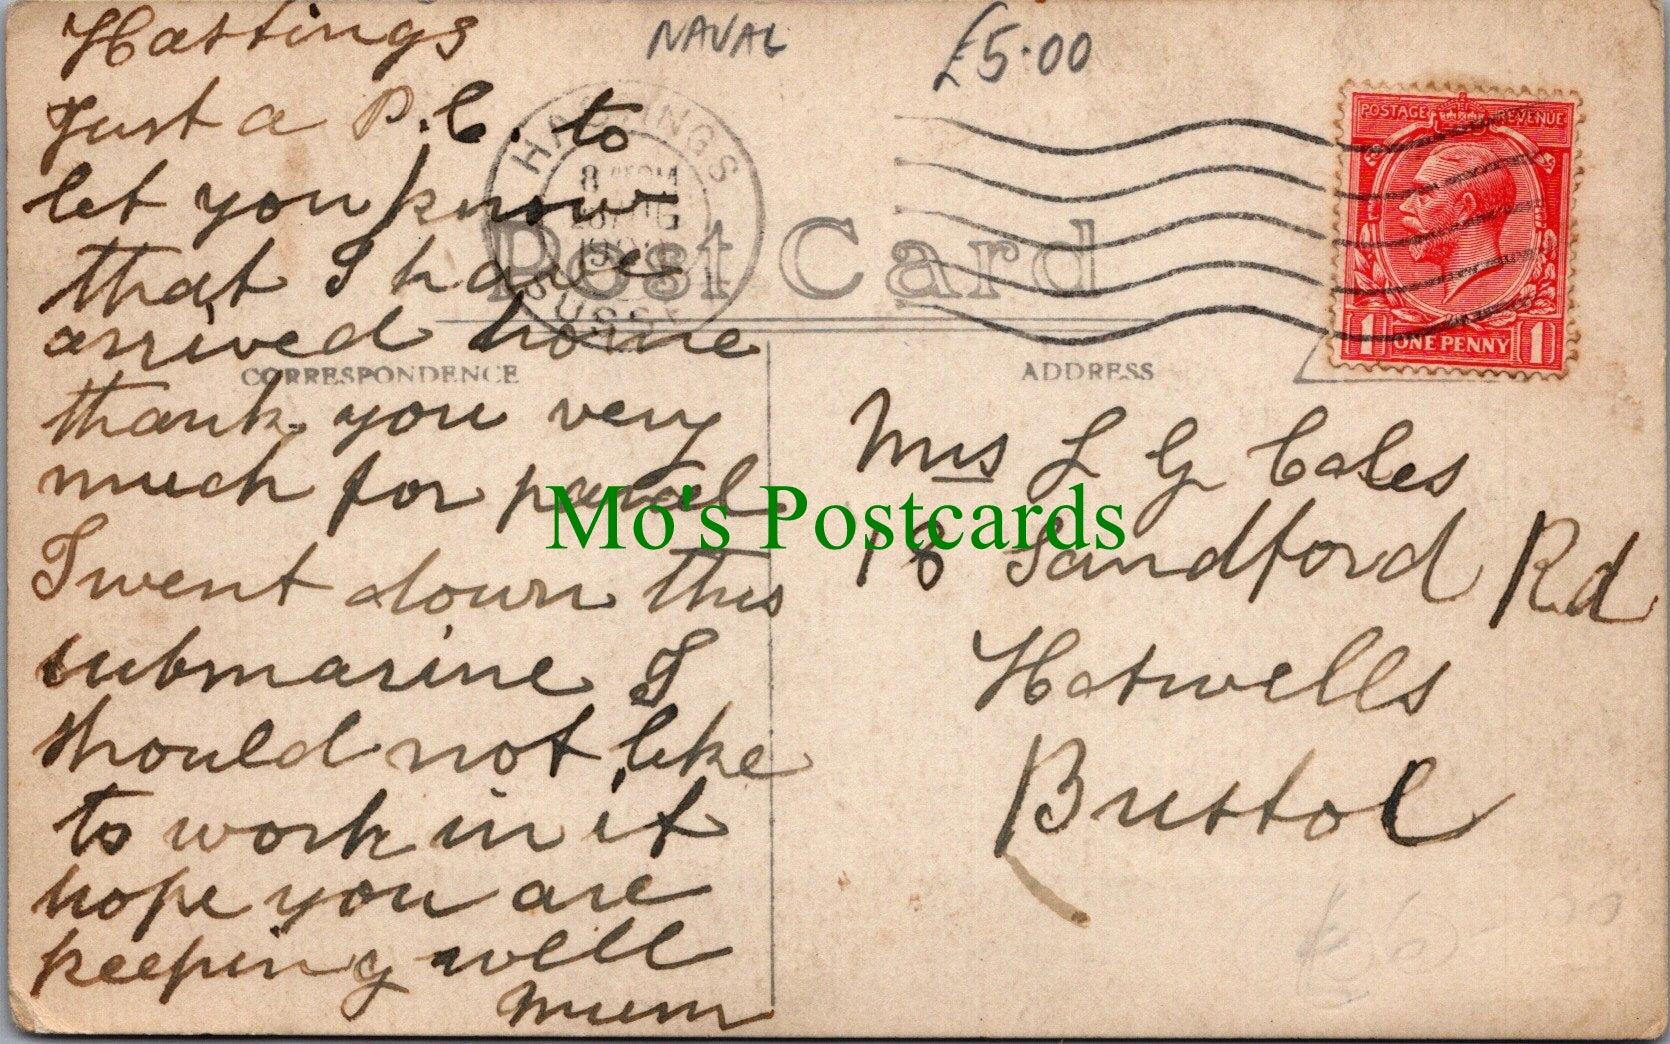 Hastings
Just a P.C. to
let you know
that I have
arrived home
thank you very
much for parcel
I went down this
submarine I
should not like
to work in it
hope you are
keeping well
Mum
NAVAL
£5.00
HASTINGS
SUSSEX
Post Card
CORRESPONDENCE
ADDRESS
POSTAGE REVENUE
1 ONE PENNY 1
Mrs L G Coles
18 Sandford Rd
Hotwells
Bristol
Mo's Postcards